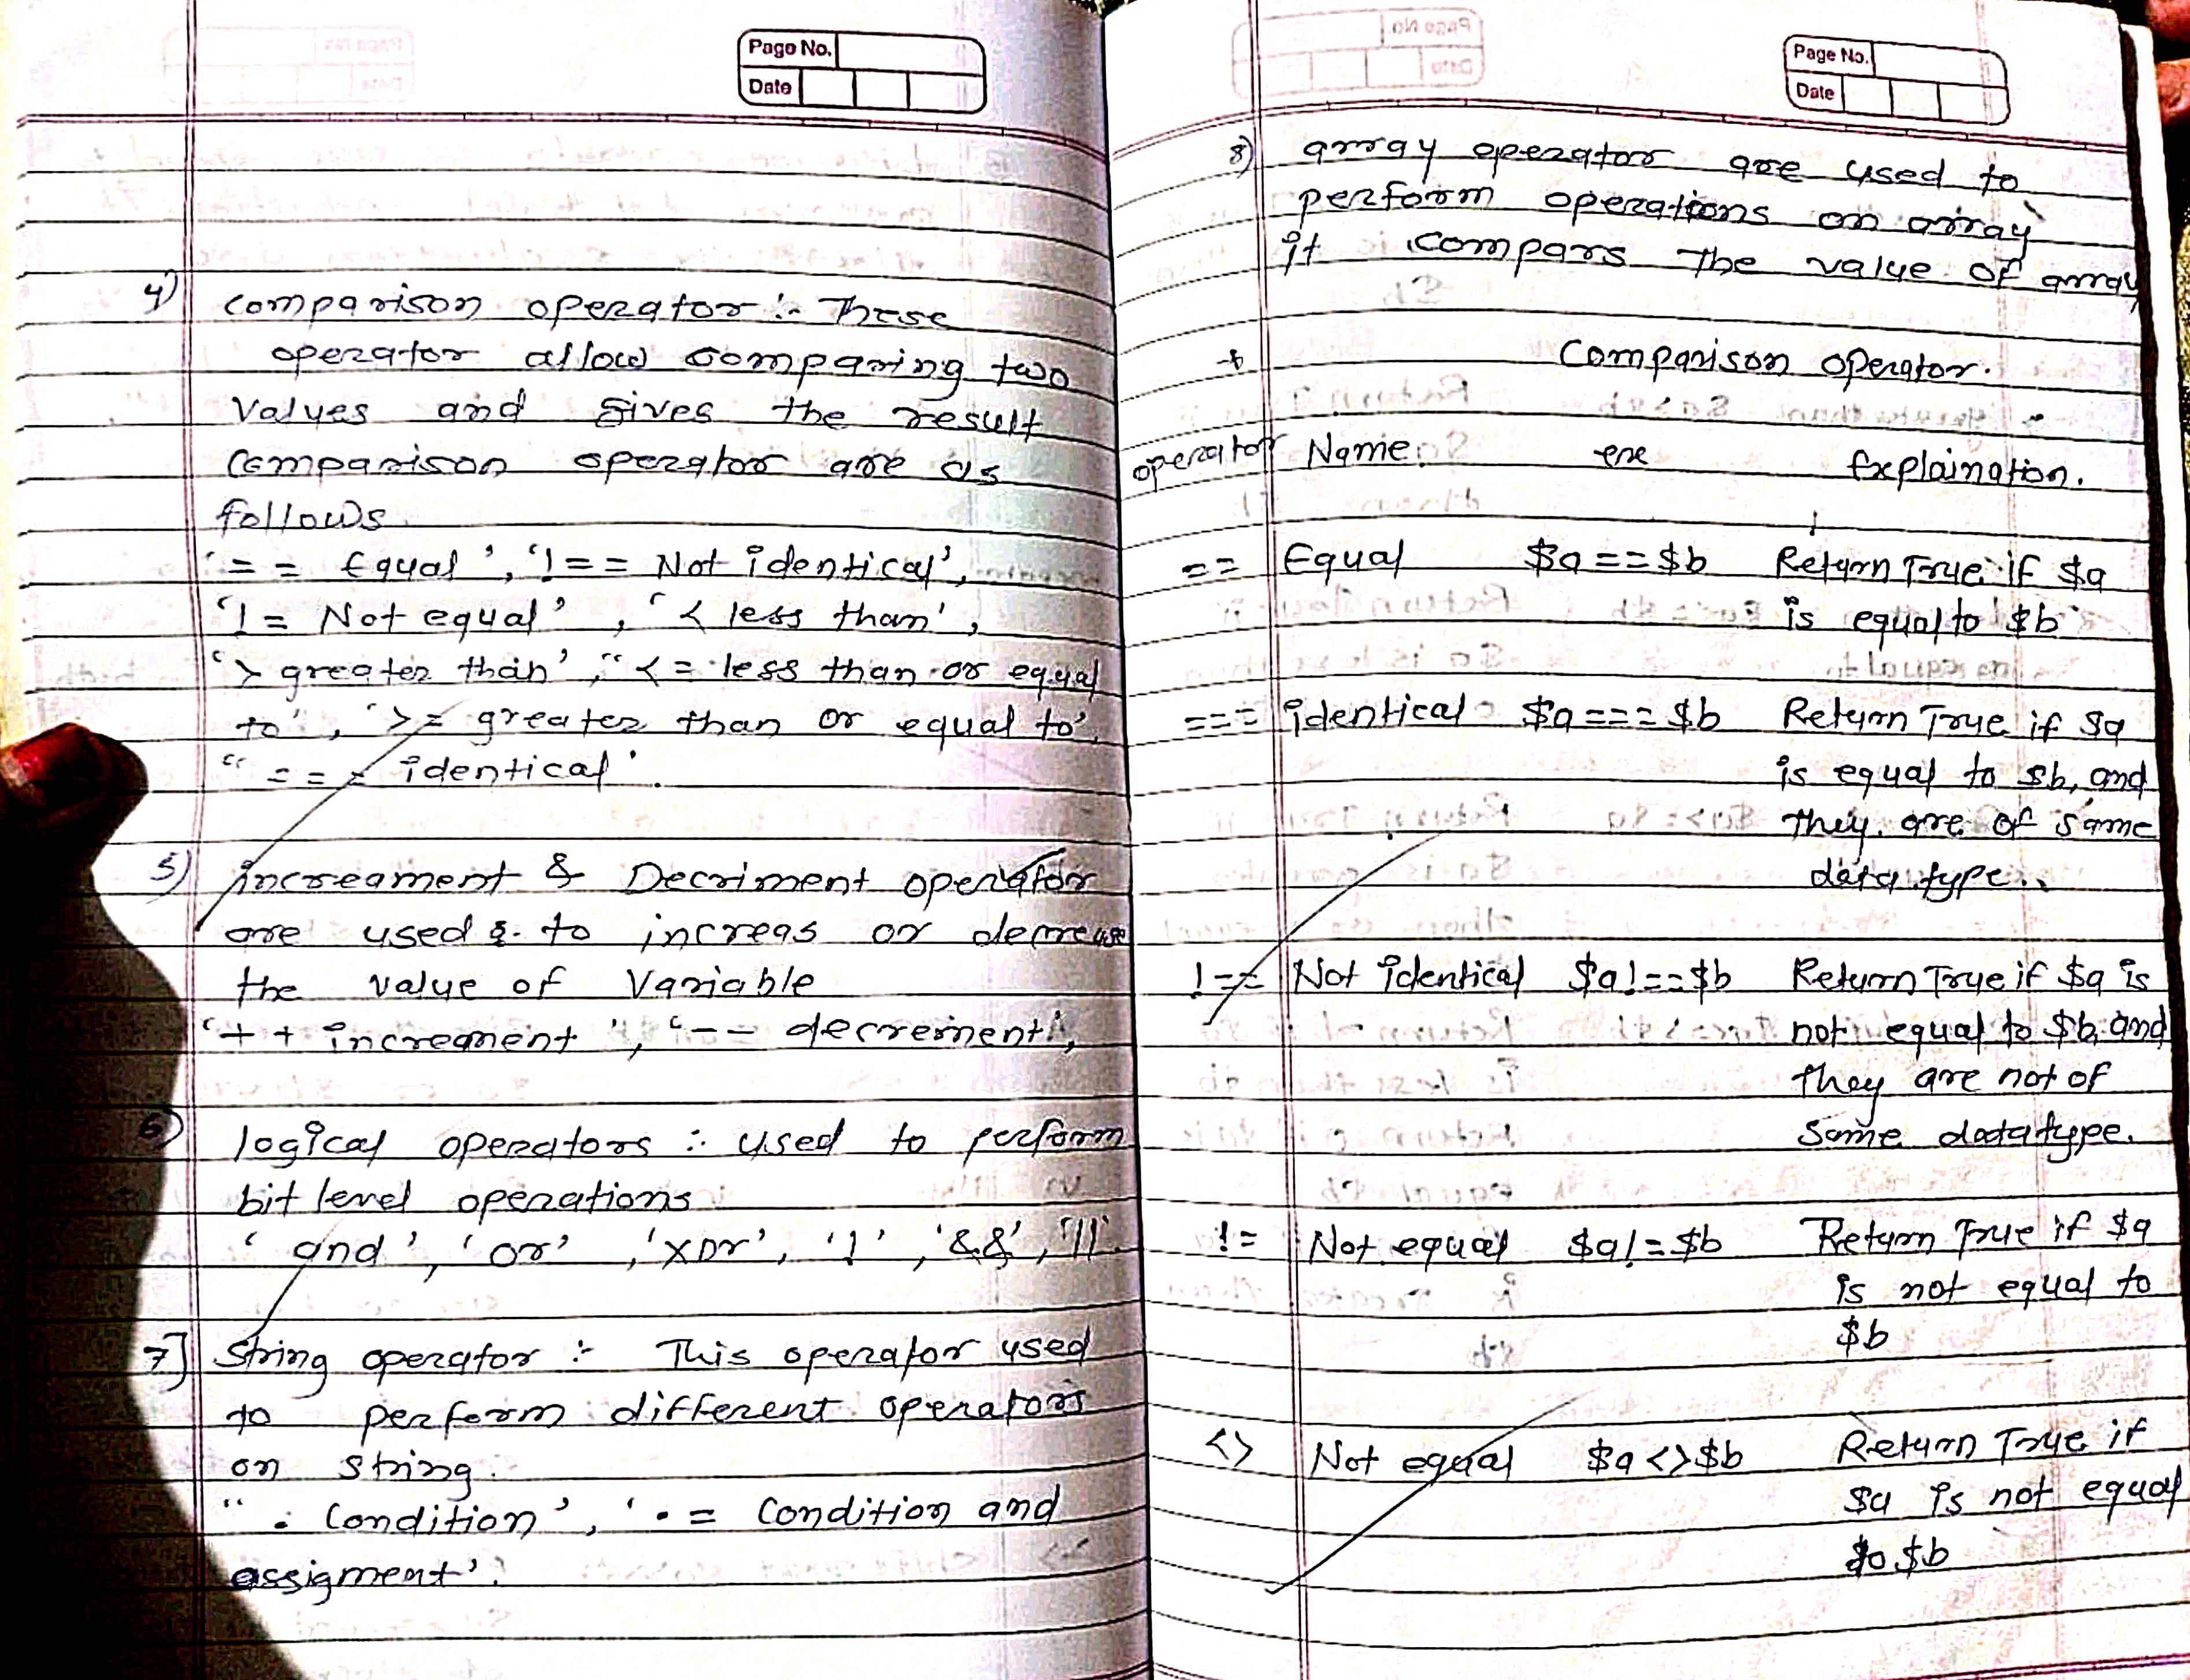 Page No.
Date
4) comparison operator :- These
operator allow comparing two
values and gives the result
comparison operator are as
follows
'== Equal', '!== Not identical',
'!= Not equal', '< less than',
'> greater than', "<= less than or equal
to', '>= greater than or equal to'
"=== identical'.
5) increament & Decriment operator
are used & to increas or decrease
the value of Variable
'++ increament', '-- decrement',
6) logical operators : used to perform
bit level operations
'and', 'or', 'xor', '!', '&&', '||'
7] String operator :- This operator used
to perform different operators
on string.
". Condition', '.= Condition and
assigment'.
Page No.
Date
8) array operator are used to
perform operations on array
it compars The value of array
* Comparison operator.
operator Name exe Explaination.
== Equal $a==$b Return True if $a
is equal to $b
=== identical $a===$b Return True if $a
is equal to $b, and
They are of same
data type.
!== Not identical $a!==$b Return True if $a is
not equal to $b, and
they are not of
same datatype.
!= Not equal $a!=$b Return True if $a
is not equal to
$b
<> Not equal $a<>$b Return True if
$a is not equal
to $b